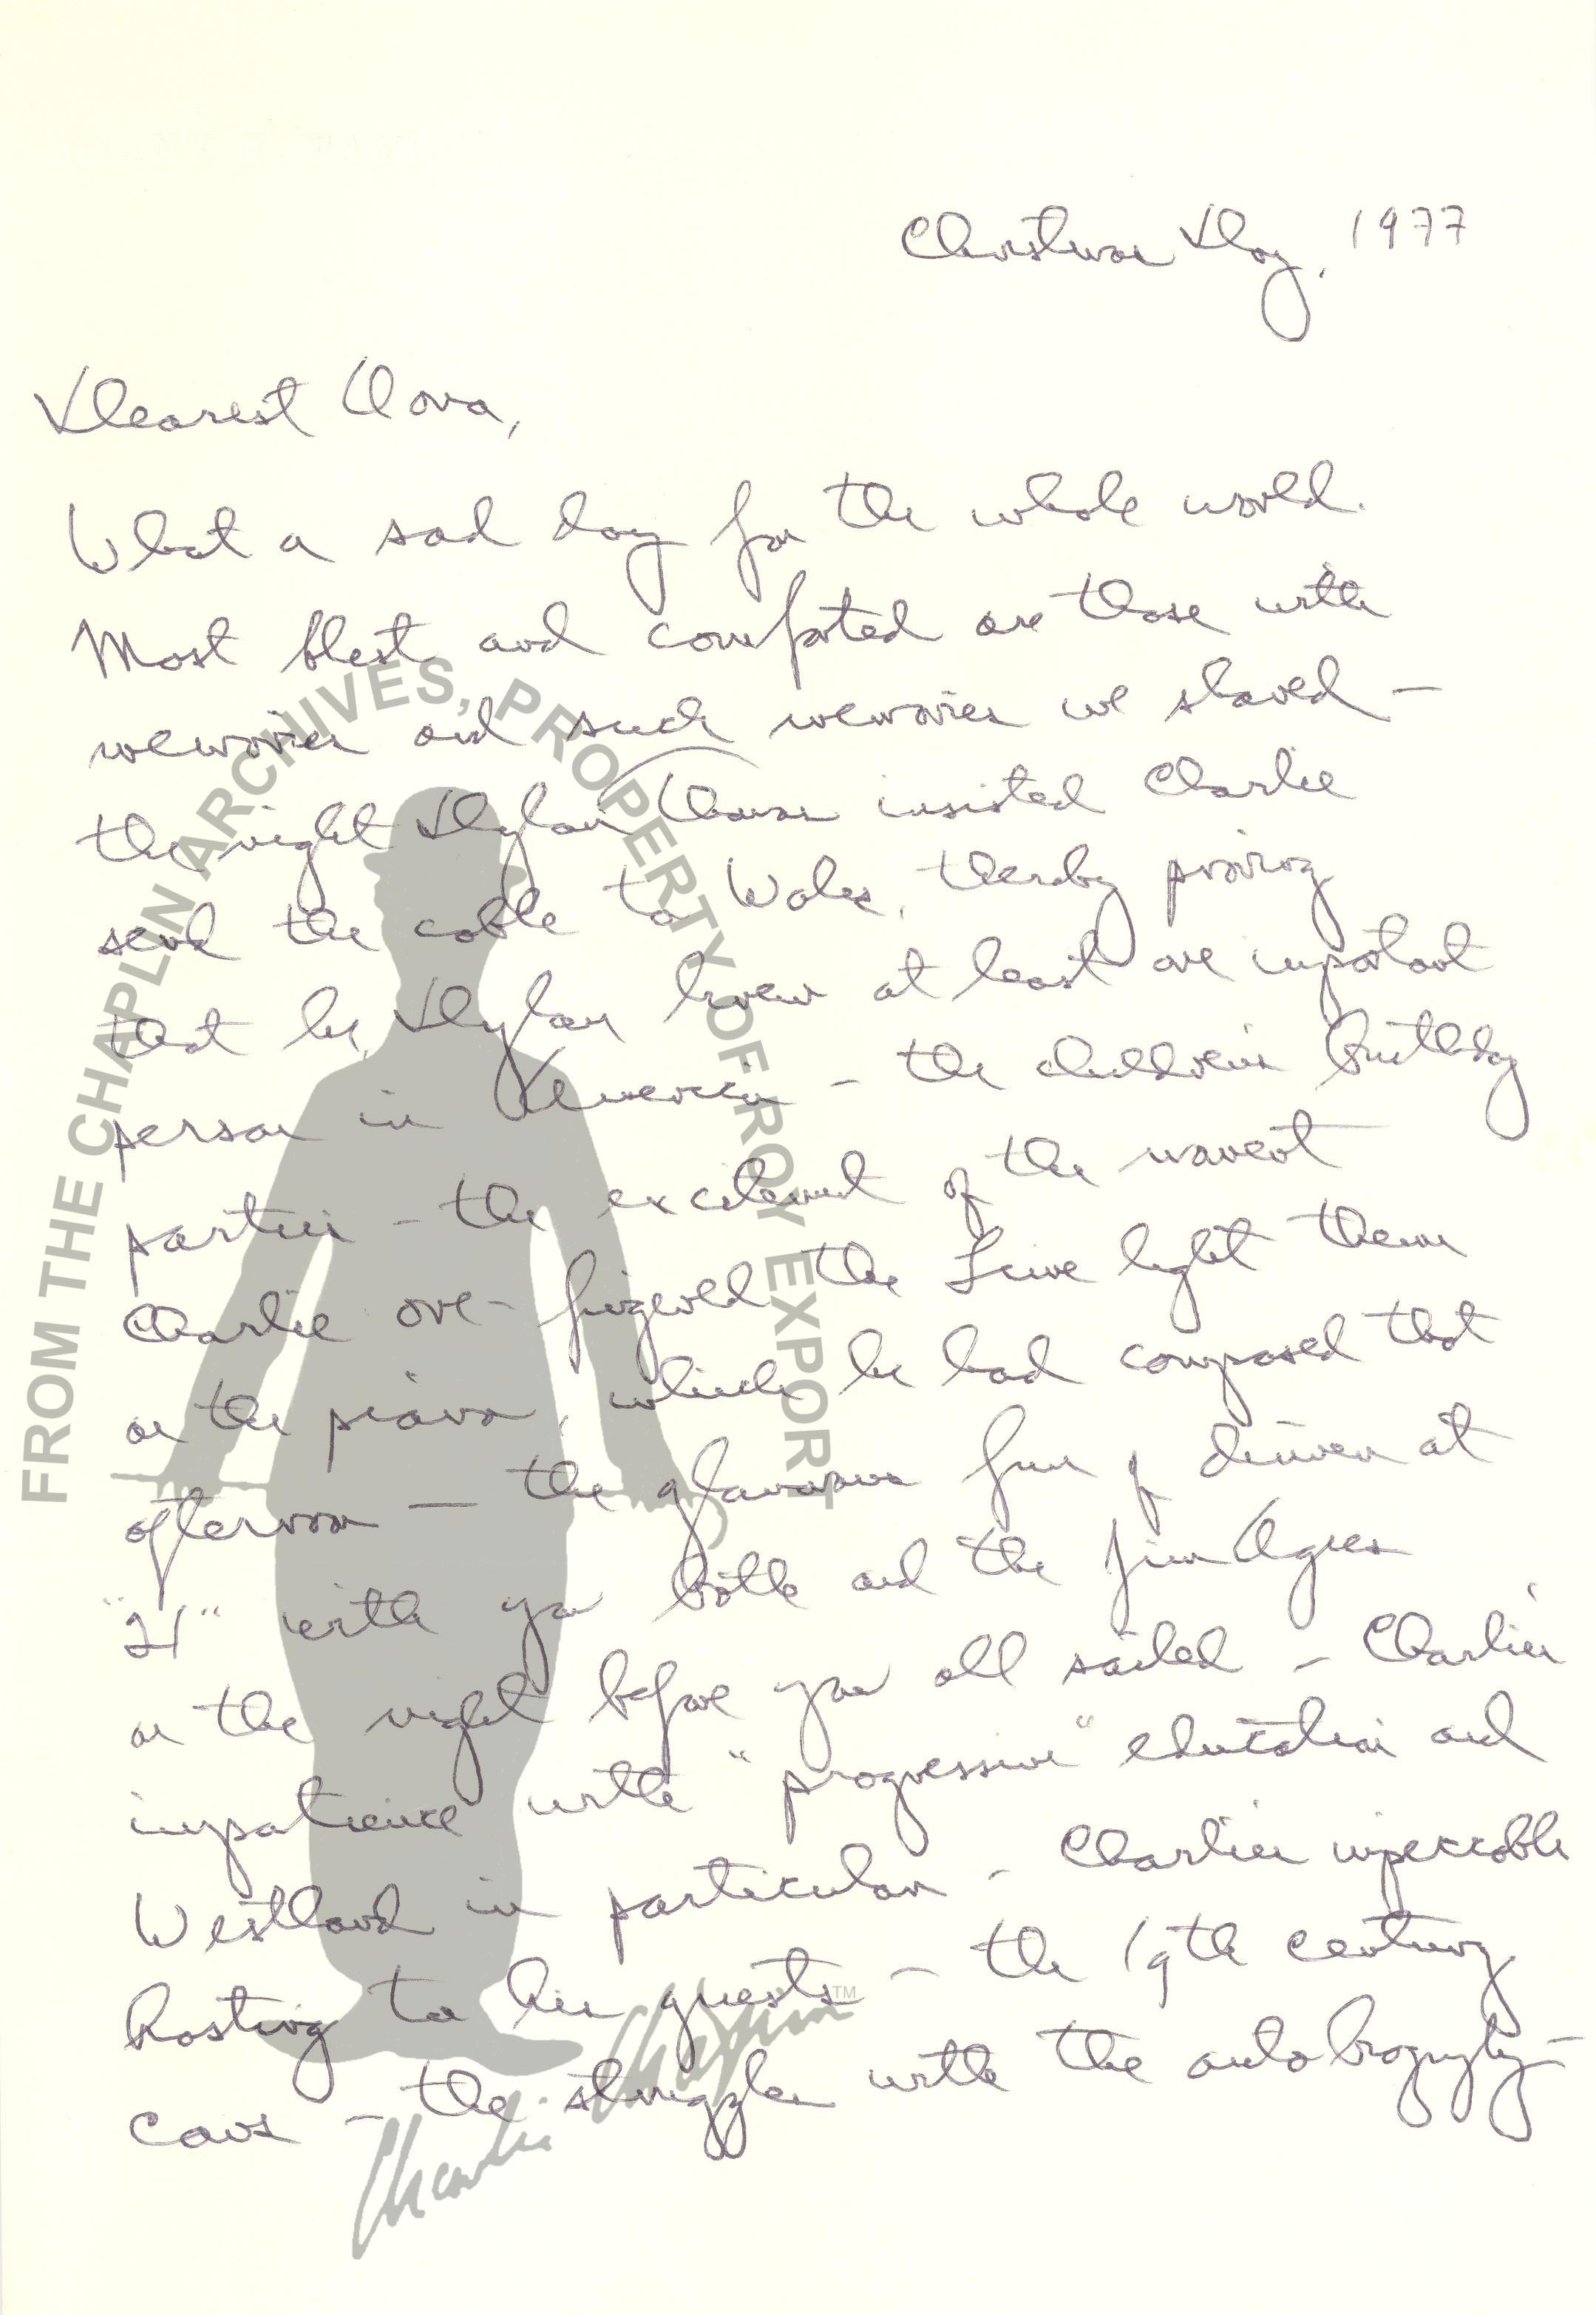 Christmas Day, 1977
Dearest Oona,
What a sad day for the whole world.
Most blest and comforted are those with
memories and such memories we shared —
the night Dylan Thomas insisted Charlie
send the cable to Wales, thereby proving
that he, Dylan knew at least one important
person in America – the children's birthday
parties – the excitement of the moment
Charlie one-fingered the Lime light theme
on the piano, which he had composed that
afternoon — the glamorous fun of dinner at
"21" with you both and the Jim Agees
on the night before you all sailed – Charlie's
impatience with "progressive" education and
Westland in particular – Charlie's impeccable
hosting to his guests – the 19th century
cans – the struggles with the autobiography –
FROM THE CHAPLIN ARCHIVES, PROPERTY OF ROY EXPORT
Charlie Chaplin™